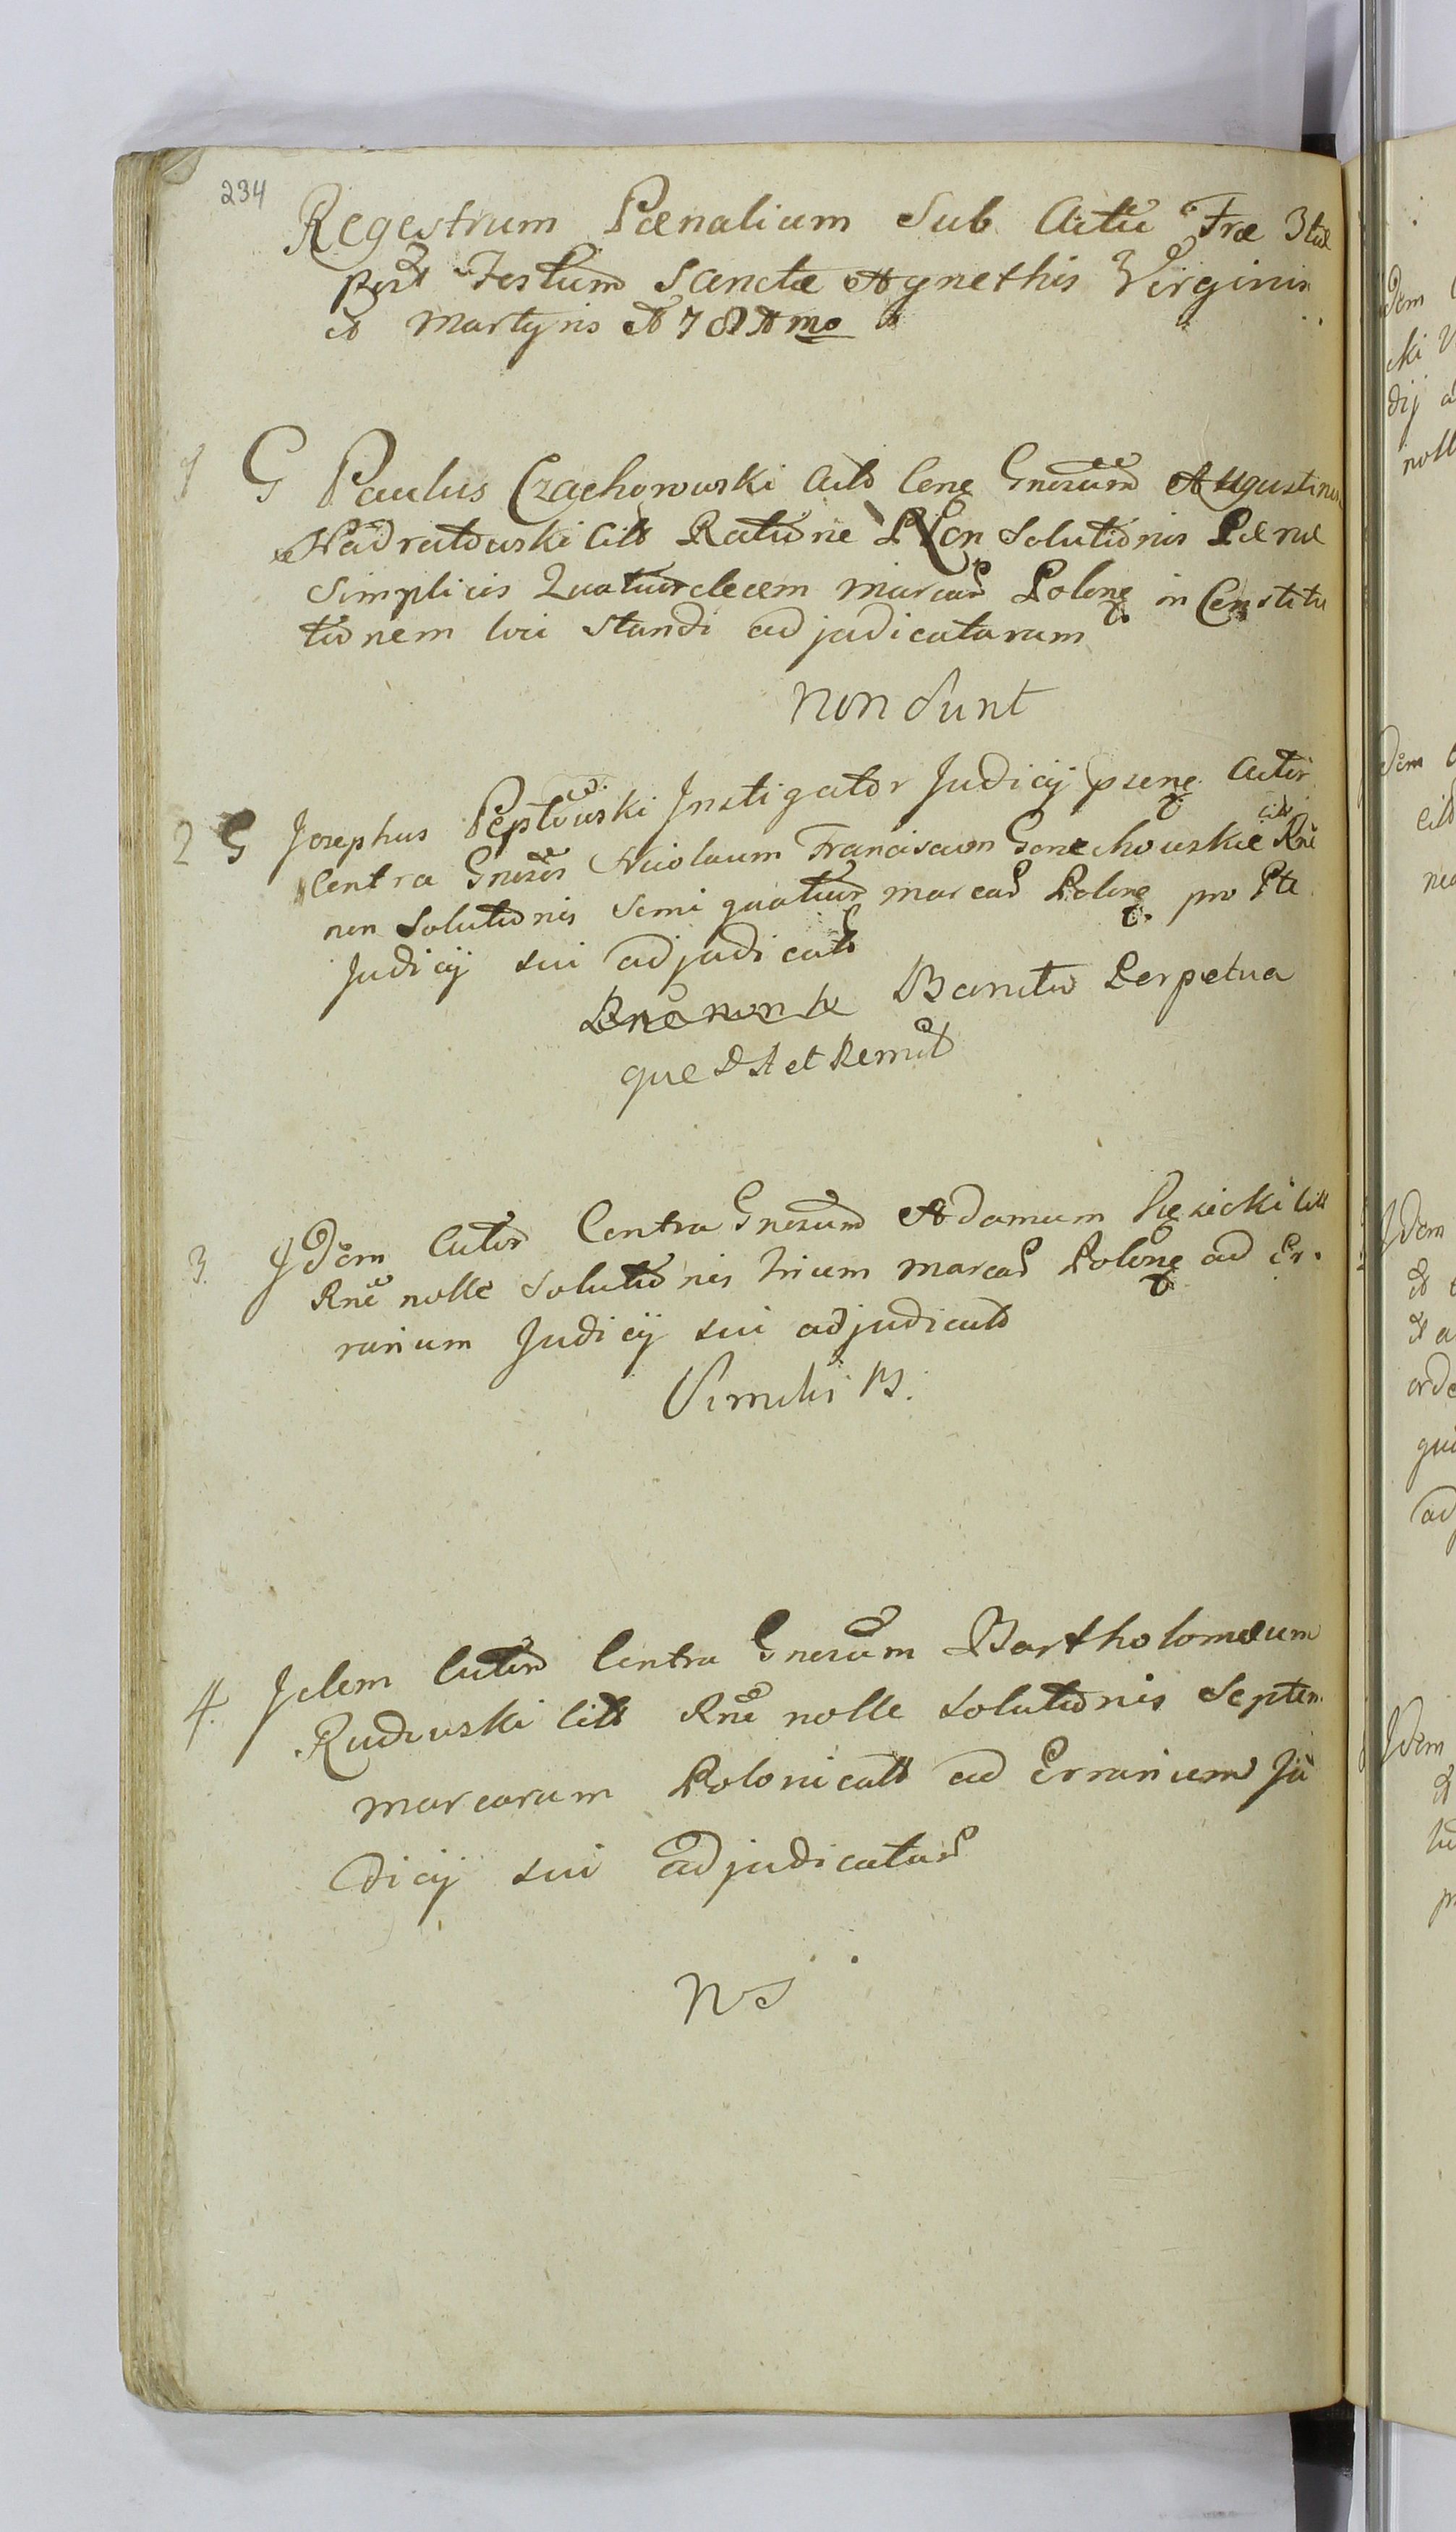 234
Regestrum Pænalium Sub Actu Fræ 3tiæ
post Festum Sanctæ Agnethis Virginis
et Martyris A 78
1 G Paulus Czachorowski Act Cone Gnosum Augustinum
Nadratowski Citt Ratione Non Solutionis Pænæ
Simplicis Quatuordecem marcar Polone in Constitu
tionem loci Standi adjudicatarum
non Sunt
2 G Josephus Peptowski Instigator Judicij psene Actor
citt
Contra Gnosos Nicolaum Franciscum Rne
non Solutionis Semi quatuor marcar Polone pro Pte
Judicij sui adjudicat
Banitio Perpetua
que et Remit
3. Idem Actor Contra Gnosum Adamum citt
Rne nolle Solutionis trium marcar Polone ad Er-
rarium Judicij sui adjudicat
Similis B.
4. Idem Actor Contra Gnosum Bartholomæum
Rudowski Citt Rne nolle Solutionis Septem
marcarum Polonicatt ad Errarium Ju
dicij sui adjudicatar
NS